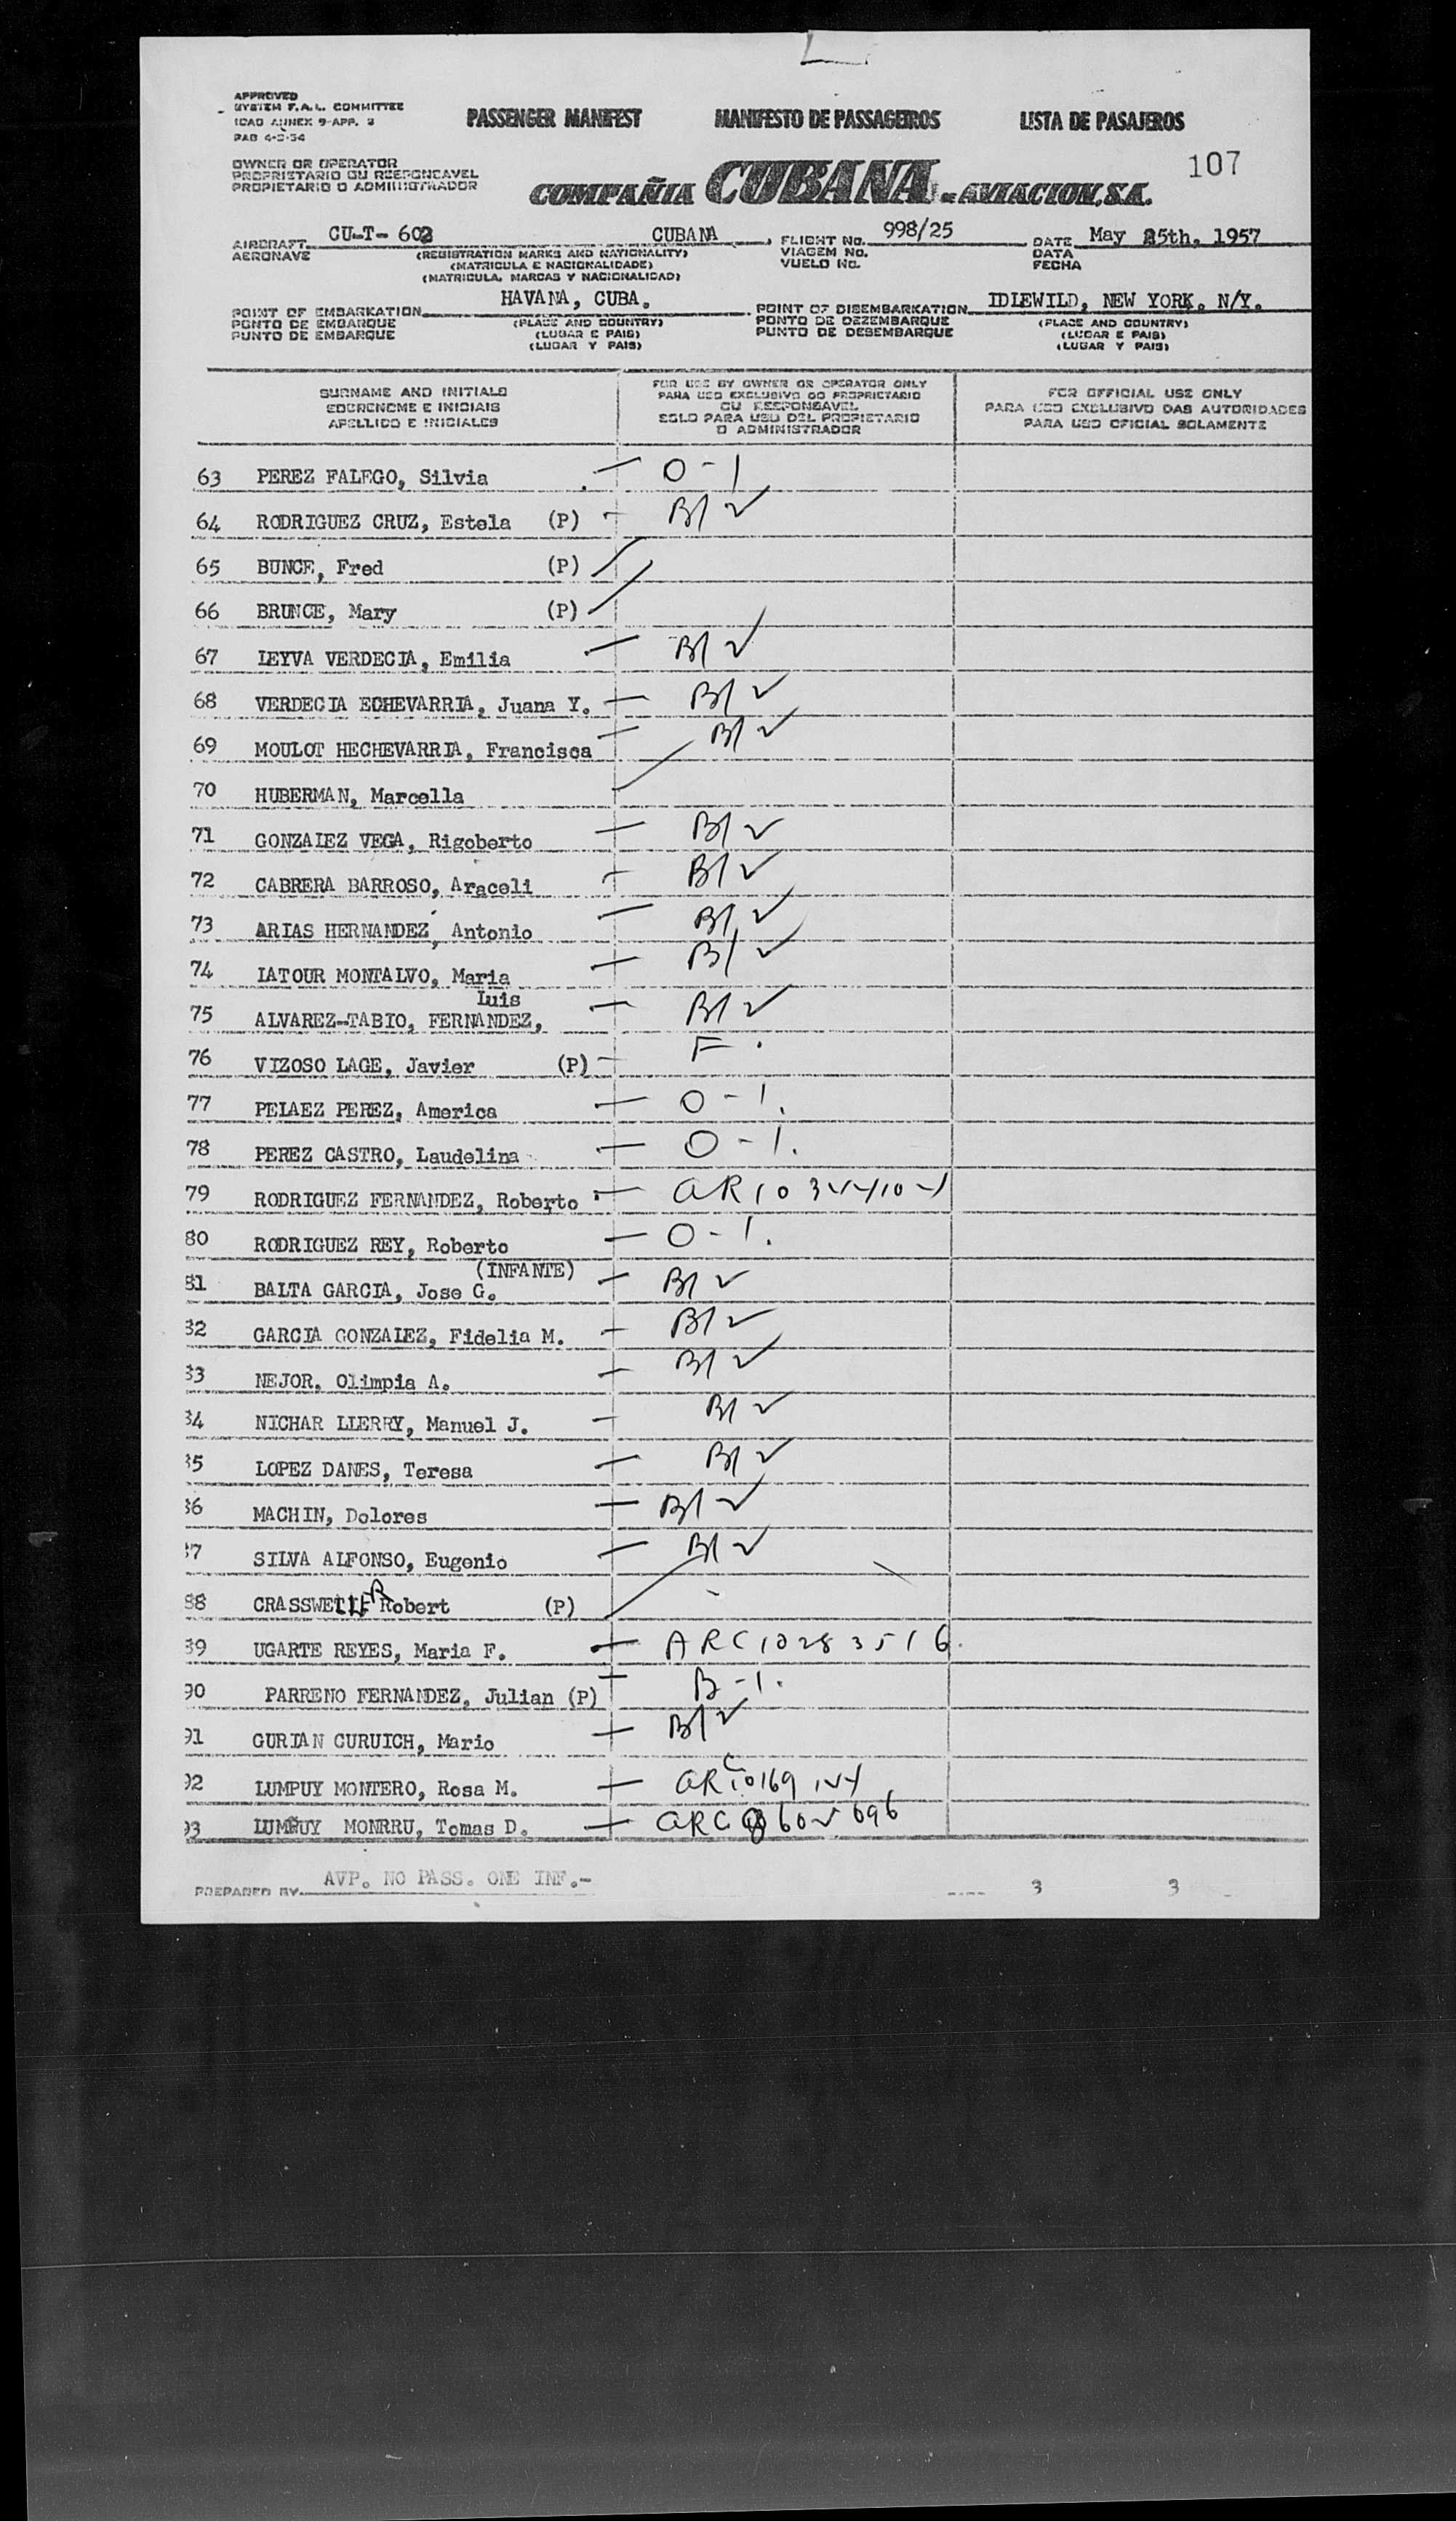 APPROVED
SYSTEM F.A.L. COMMITTEE
ICAO ANNEX 9-APP. 3
PASSENGER MANIFEST MANIFESTO DE PASSAGEIROS LISTA DE PASAJEROS
107
OWNER OR OPERATOR
PROPRIETARIO OU RESPONSAVEL
PROPIETARIO O ADMINISTRADOR
COMPAÑIA CUBANA DE AVIACION, S.A.
AIRCRAFT CU-T-602 CUBANA FLIGHT NO. 998/25 DATE May 25th, 1957
AERONAVE (REGISTRATION MARKS AND NATIONALITY) VIAGEM NO. DATA
(MATRICULA E NACIONALIDADE) VUELO NO. FECHA
(MATRICULA, MARCAS Y NACIONALIDAD)
POINT OF EMBARKATION HAVANA, CUBA. POINT OF DISEMBARKATION IDLEWILD, NEW YORK. N/Y.
PONTO DE EMBARQUE (PLACE AND COUNTRY) PONTO DE DEZEMBARQUE (PLACE AND COUNTRY)
PUNTO DE EMBARQUE (LUGAR E PAIS) PUNTO DE DESEMBARQUE (LUGAR E PAIS)
(LUGAR Y PAIS) (LUGAR Y PAIS)
SURNAME AND INITIALS
SOBRENOME E INICIAIS
APELLIDO E INICIALES
FOR USE BY OWNER OR OPERATOR ONLY
PARA USO EXCLUSIVO DO PROPRIETARIO
OU RESPONSAVEL
SOLO PARA USO DEL PROPIETARIO
O ADMINISTRADOR
FOR OFFICIAL USE ONLY
PARA USO EXCLUSIVO DAS AUTORIDADES
PARA USO OFICIAL SOLAMENTE
63 PEREZ FALEGO, Silvia O-1
64 RODRIGUEZ CRUZ, Estela (P) B/ 2
65 BUNCE, Fred (P)
66 BRUNCE, Mary (P)
67 LEYVA VERDECIA, Emilia B/ 2
68 VERDECIA ECHEVARRIA, Juana Y. B/ 2
69 MOULOT HECHEVARRIA, Francisca B/ 2
70 HUBERMAN, Marcella
71 GONZALEZ VEGA, Rigoberto B/ 2
72 CABRERA BARROSO, Araceli B/ 2
73 ARIAS HERNANDEZ, Antonio B/ 2
74 LATOUR MONTALVO, Maria B/ 2
Luis
75 ALVAREZ-TABIO, FERNANDEZ, B/ 2
76 VIZOSO LAGE, Javier (P) F.
77 PELAEZ PEREZ, America O-1.
78 PEREZ CASTRO, Laudelina O-1.
79 RODRIGUEZ FERNANDEZ, Roberto
80 RODRIGUEZ REY, Roberto O-1.
(INFANTE)
81 BALTA GARCIA, Jose G. B/ 2
82 GARCIA GONZALEZ, Fidelia M. B/ 2
83 NEJOR. Olimpia A. B/ 2
84 NICHAR LLERRY, Manuel J. B/ 2
85 LOPEZ DANES, Teresa B/ 2
86 MACHIN, Dolores B/ 2
87 SILVA ALFONSO, Eugenio B/ 2
88 CRASSWELLER Robert (P)
89 UGARTE REYES, Maria F. ARC 10283516.
90 PARRENO FERNANDEZ, Julian (P) B-1.
91 GURIAN CURUICH, Mario B/ 2
92 LUMPUY MONTERO, Rosa M.
93 LUMPUY MONRRU, Tomas D.
PREPARED BY AVP. NO PASS. ONE INF.-
3 3